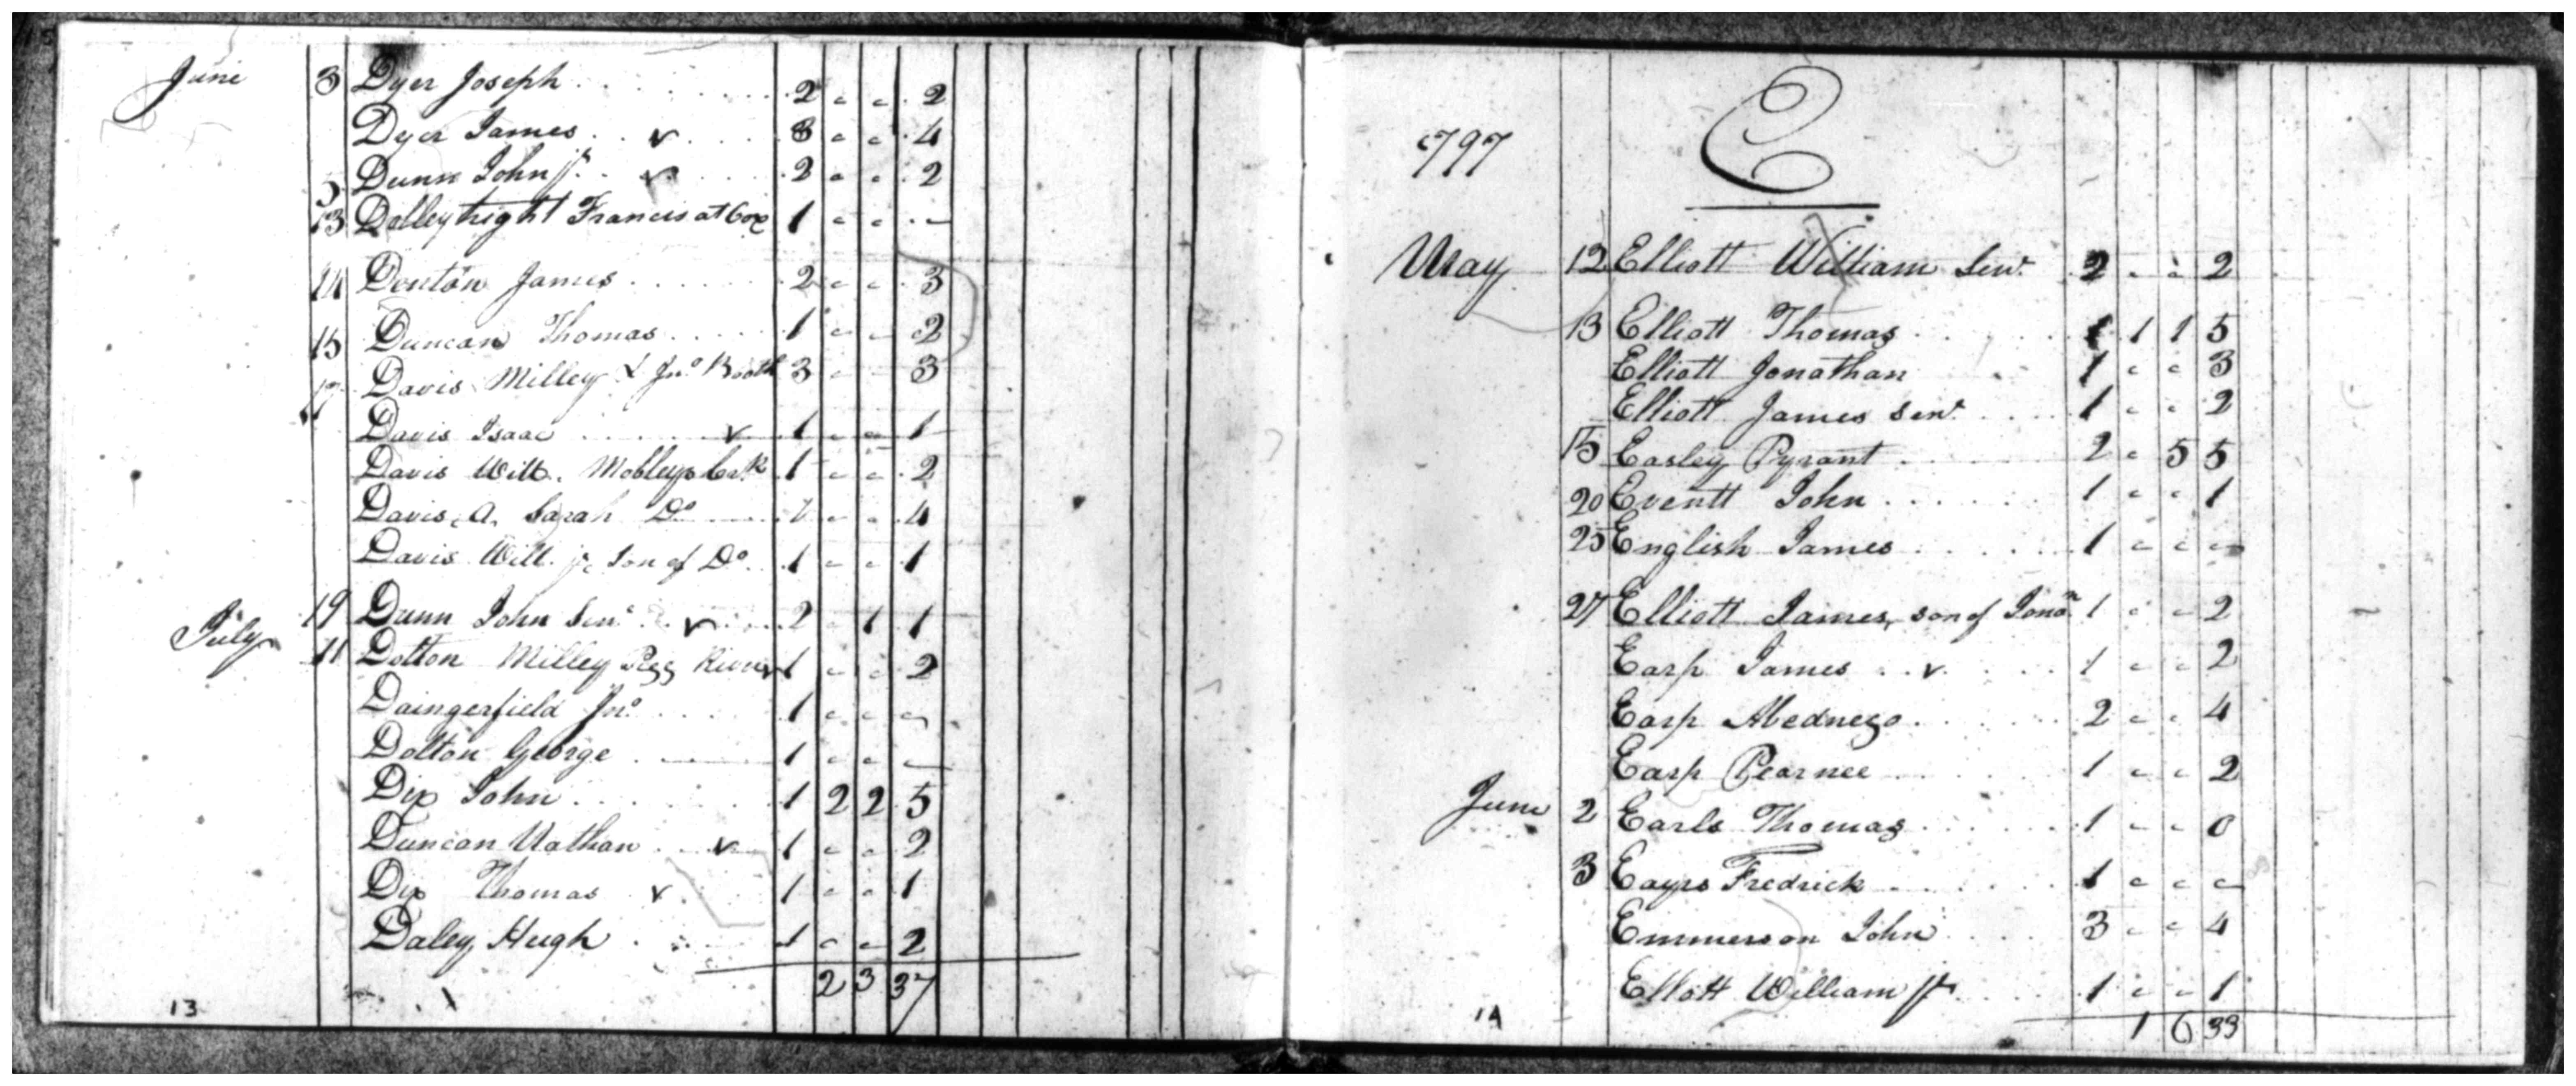 June 3 Dyer Joseph 2 - - 2
Dyer James v 3 - - 4
5 Dunn John jr. v 2 - - 2
13 Dolleyhight Francis at Cox 1 - - -
14 Denton James 2 - - 3
15 Duncan Thomas 1 - - 2
17 Davis Milley & Jno. Booth 3 - 3
Davis Isaac v 1 - - 1
Davis Will. Mobleys Crk 1 - - 2
Davis, A. Sarah Do 1 - - 4
Davis Will. jr. son of Do. 1 - - 1
19 Dunn John Senr. v 2 - 1 1
July 11 Dolton Milley Pigg River 1 - - 2
Daingerfield Jno. 1 - - -
Dolton George 1 - - -
Dix John 1 2 2 5
Duncan Nathan v 1 - - 2
Dix Thomas v 1 - - 1
Daley Hugh 1 - - 2
2 3 37
13
1797 E
May 12 Elliott William Senr. 2 - - 2
13 Elliott Thomas 1 1 1 5
Elliott Jonathan 1 - - 3
Elliott James Senr. 1 - - 2
15 Easley Pyrant 2 - 5 5
20 Eventt John 1 - - 1
25 English James 1 - - -
27 Elliott James, son of Jona. 1 - - 2
Earp James v 1 - - 2
Earp Abednego 2 - - 4
Earp Pearnee 1 - - 2
June 2 Earls Thomas 1 - - 0
3 Eayrs Fredrick 1 - - -
Emmerson John 3 - - 4
Ellott William jr 1 - - 1
1 6 33
14